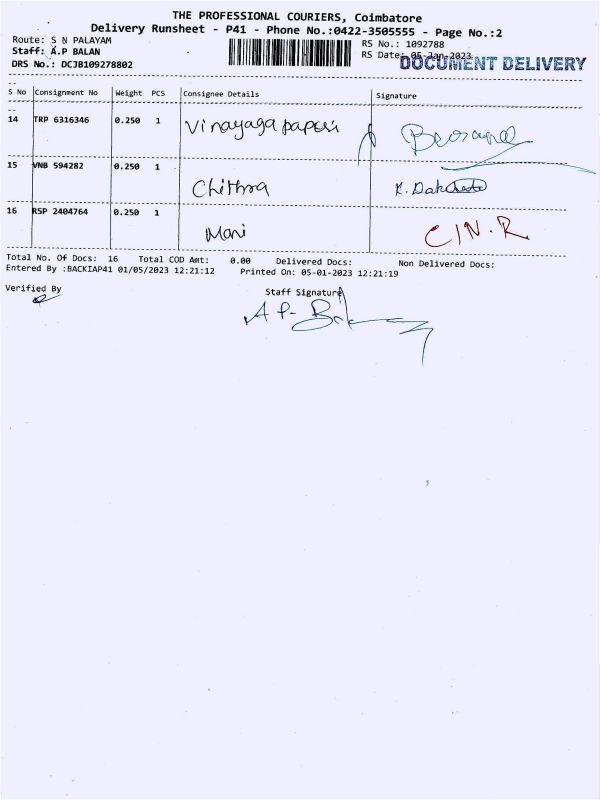 THE PROFESSIONAL COURIERS, Coimbatore
Delivery Runsheet - P41 - Phone No.:0422-3505555 - Page No.:2
Route: S N PALAYAM
Staff: A.P BALAN
DRS No.: DCJB109278802
RS No.: 1092788
RS Date: 05-Jan-2023
DOCUMENT DELIVERY
S No Consignment No Weight PCS Consignee Details Signature
14 TRP 6316346 0.250 1 Vinayaga papers
15 VNB 594282 0.250 1 Chithra
16 RSP 2404764 0.250 1 Mani C/N.R
Total No. Of Docs: 16 Total COD Amt: 0.00 Delivered Docs: Non Delivered Docs:
Entered By :BACKIAP41 01/05/2023 12:21:12 Printed On: 05-01-2023 12:21:19
Verified By Staff Signature
A P- Bal